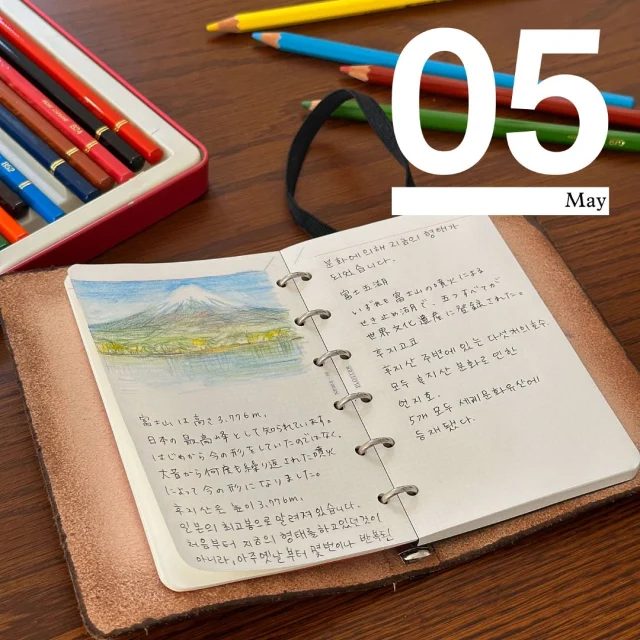 05
May
富士山は高さ3,776m.
日本の最高峰として知られています。
はじめから今の形をしていたのではなく、
大昔から何度も繰り返された噴火
によって今の形になりました。
후지산은 높이 3,776m.
일본의 최고봉으로 알려져 있습니다.
처음부터 지금의 형태를 하고 있던 것이
아니라, 아주 옛날부터 몇번이나 반복된
분화에 의해 지금의 형태가
되었습니다.
富士五湖
いずれも富士山の噴火による
せき止め湖で、五つすべてが
世界文化遺産に登録された。
후지고코
후지산 주변에 있는 다섯개의 호수
모두 후지산 분화로 인한
언지호.
5개 모두 세계문화유산에
등재됐다.